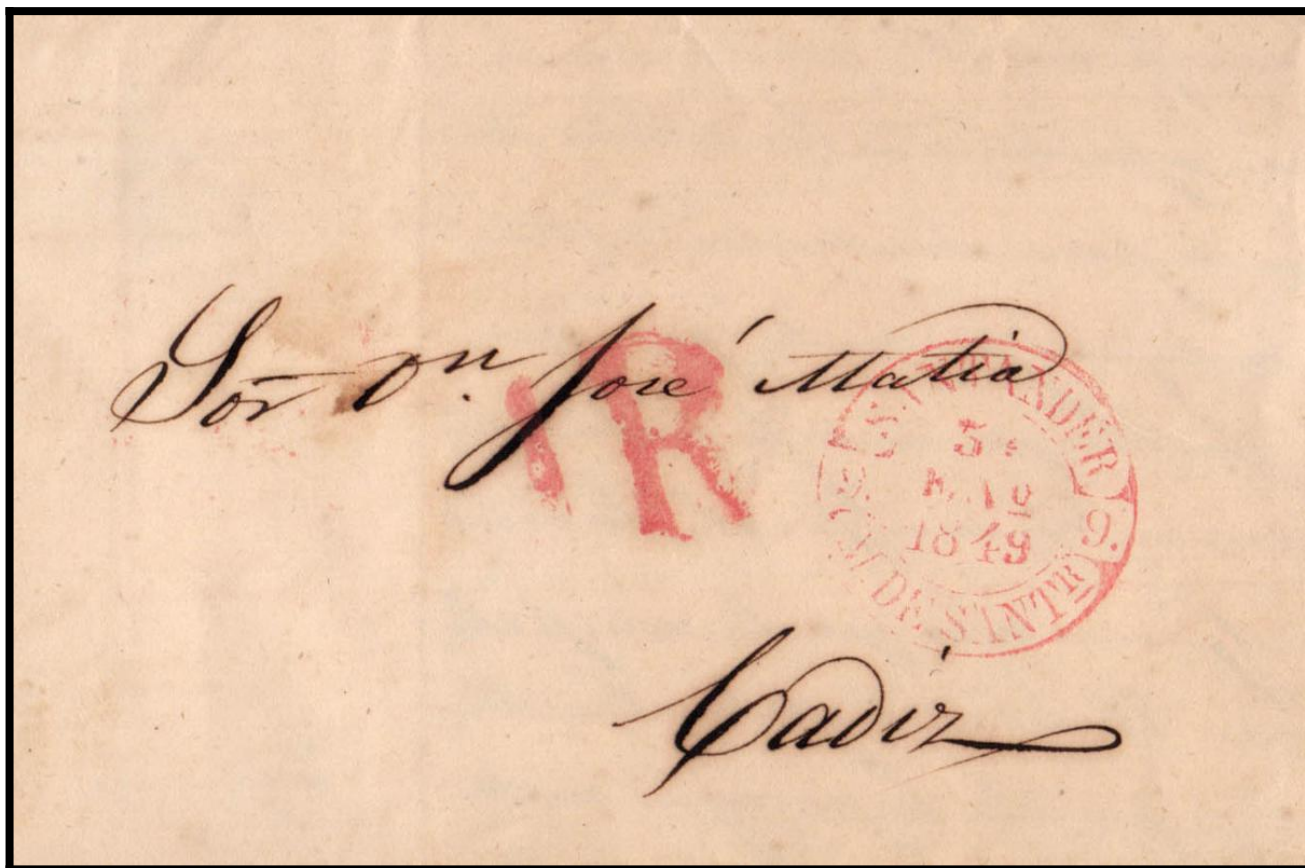 Sor Dn. José Matia
1R
SANTANDER
1849
9.
DE SANTR
Cadiz